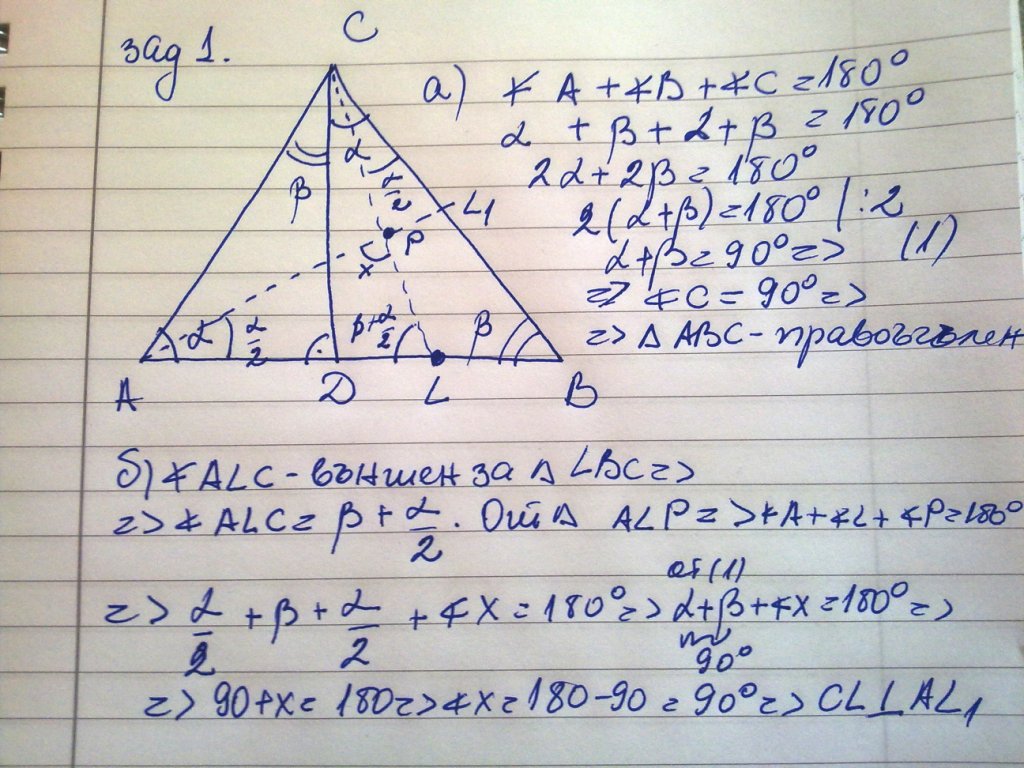 зад 1.
C
β
α
α/2
L₁
P
x
α
α/2
β+α/2
β
A
D
L
B
а) ∢A + ∢B + ∢C = 180°
α + β + α + β = 180°
2α + 2β = 180°
2(α+β) = 180° | :2
α+β = 90° => (1)
=> ∢C = 90° =>
=> Δ ABC - правоъгълен
б) ∢ALC - външен за Δ LBC =>
=> ∢ALC = β + α/2. От Δ ALP => ∢A + ∢L + ∢P = 180°
от (1)
=> α/2 + β + α/2 + ∢x = 180° => α+β+∢x = 180° =>
90°
=> 90+x = 180 => ∢x = 180-90 = 90° => CL⊥AL₁